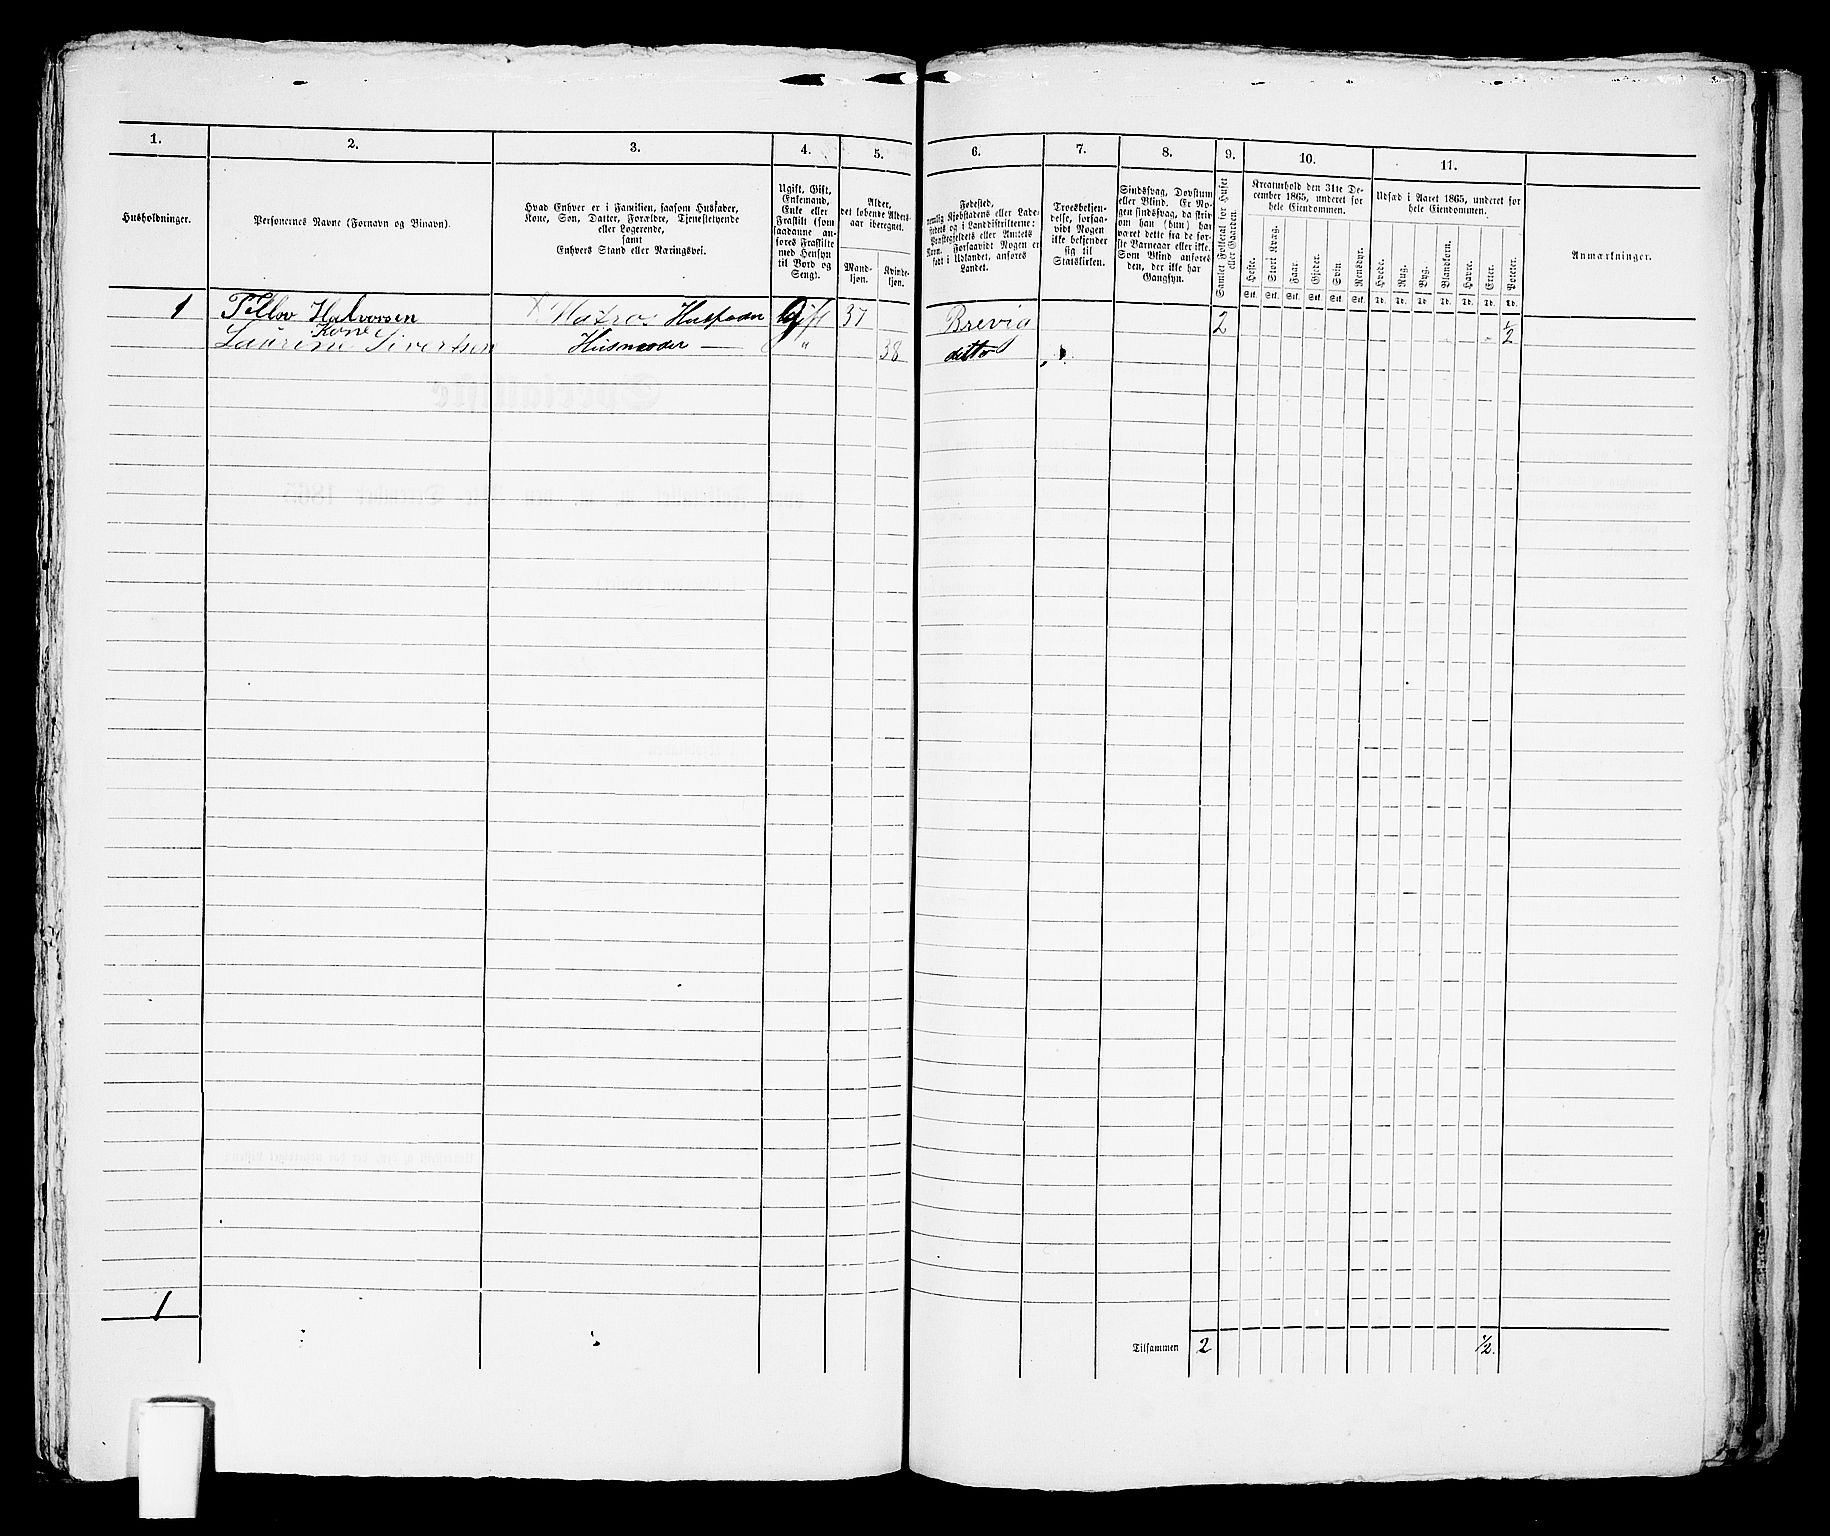 1. 2. 3. 4. 5. 6. 7. 8. 9. 10. 11.
Husholdninger.
Personernes Navne (Fornavn og Binavn).
Hvad Enhver er i Familien, saasom Husfader,
Kone, Søn, Datter, Forældre, Tjenestetyende
eller Logerende,
samt
Enhvers Stand eller Næringsvei.
Ugift, Gift,
Enkemand,
Enke eller
Fraskilt (som
saadanne an-
føres Fraskilte
med Hensyn
til Bord og
Seng).
Alder,
det løbende Alders-
aar iberegnet.
Mand-
kjøn.
Kvinde-
kjøn.
Fødested,
nemlig Kjøbstadens eller Lade-
stedets og i Landdistrikterne:
Præstegjeldets eller Amtets
Navn. Forsaavidt Nogen er
født i Udlandet, anføres
Landet.
Troesbekjen-
delse, forsaa-
vidt Nogen
ikke bekjender
sig til
Statskirken.
Sindssvag, Døvstum
eller Blind. Er No-
gen sindssvag, da skriv
om han (hun) har
været dette fra de før-
ste Barneaar eller ikke.
Som Blind anføres
den, der ikke har
Gangsyn.
Samlet Folketal for Huset
eller Gaarden.
Kreaturhold den 31te De-
cember 1865, underet for
hele Eiendommen.
Heste. Stort Kvæg. Faar. Gjeder. Svin Rensdyr.
Stk. Stk. Stk. Stk. Stk. Stk.
Udsæd i Aaret 1865, underet for
hele Eiendommen.
Hvede. Rug. Byg. Blandkorn. Havre. Erter. Poteter.
Td. Td. Td. Td. Td. Td. Td.
Anmærkninger.
1 Tellov Halvorsen Matros Husfader Gift 37 Brevig 2 ½
Kone
Laurine Sivertsen Husmoder — " 38 ditto
1
Tilsammen 2 ½.